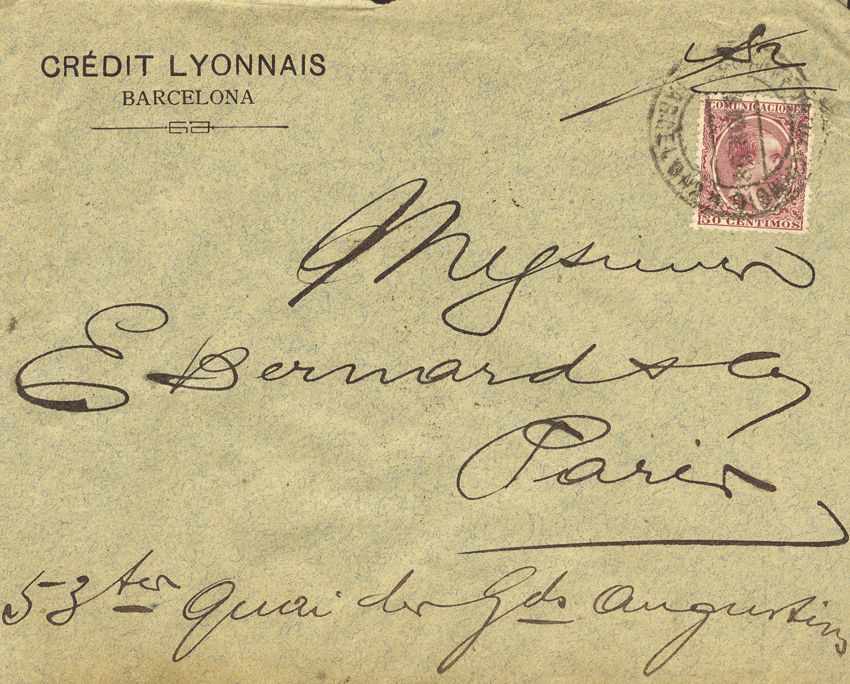 CRÉDIT LYONNAIS
BARCELONA
COMUNICACIONES
50 CENTIMOS
E Bernard & Cy
Paris
53 ter Quai des Gds Augustins